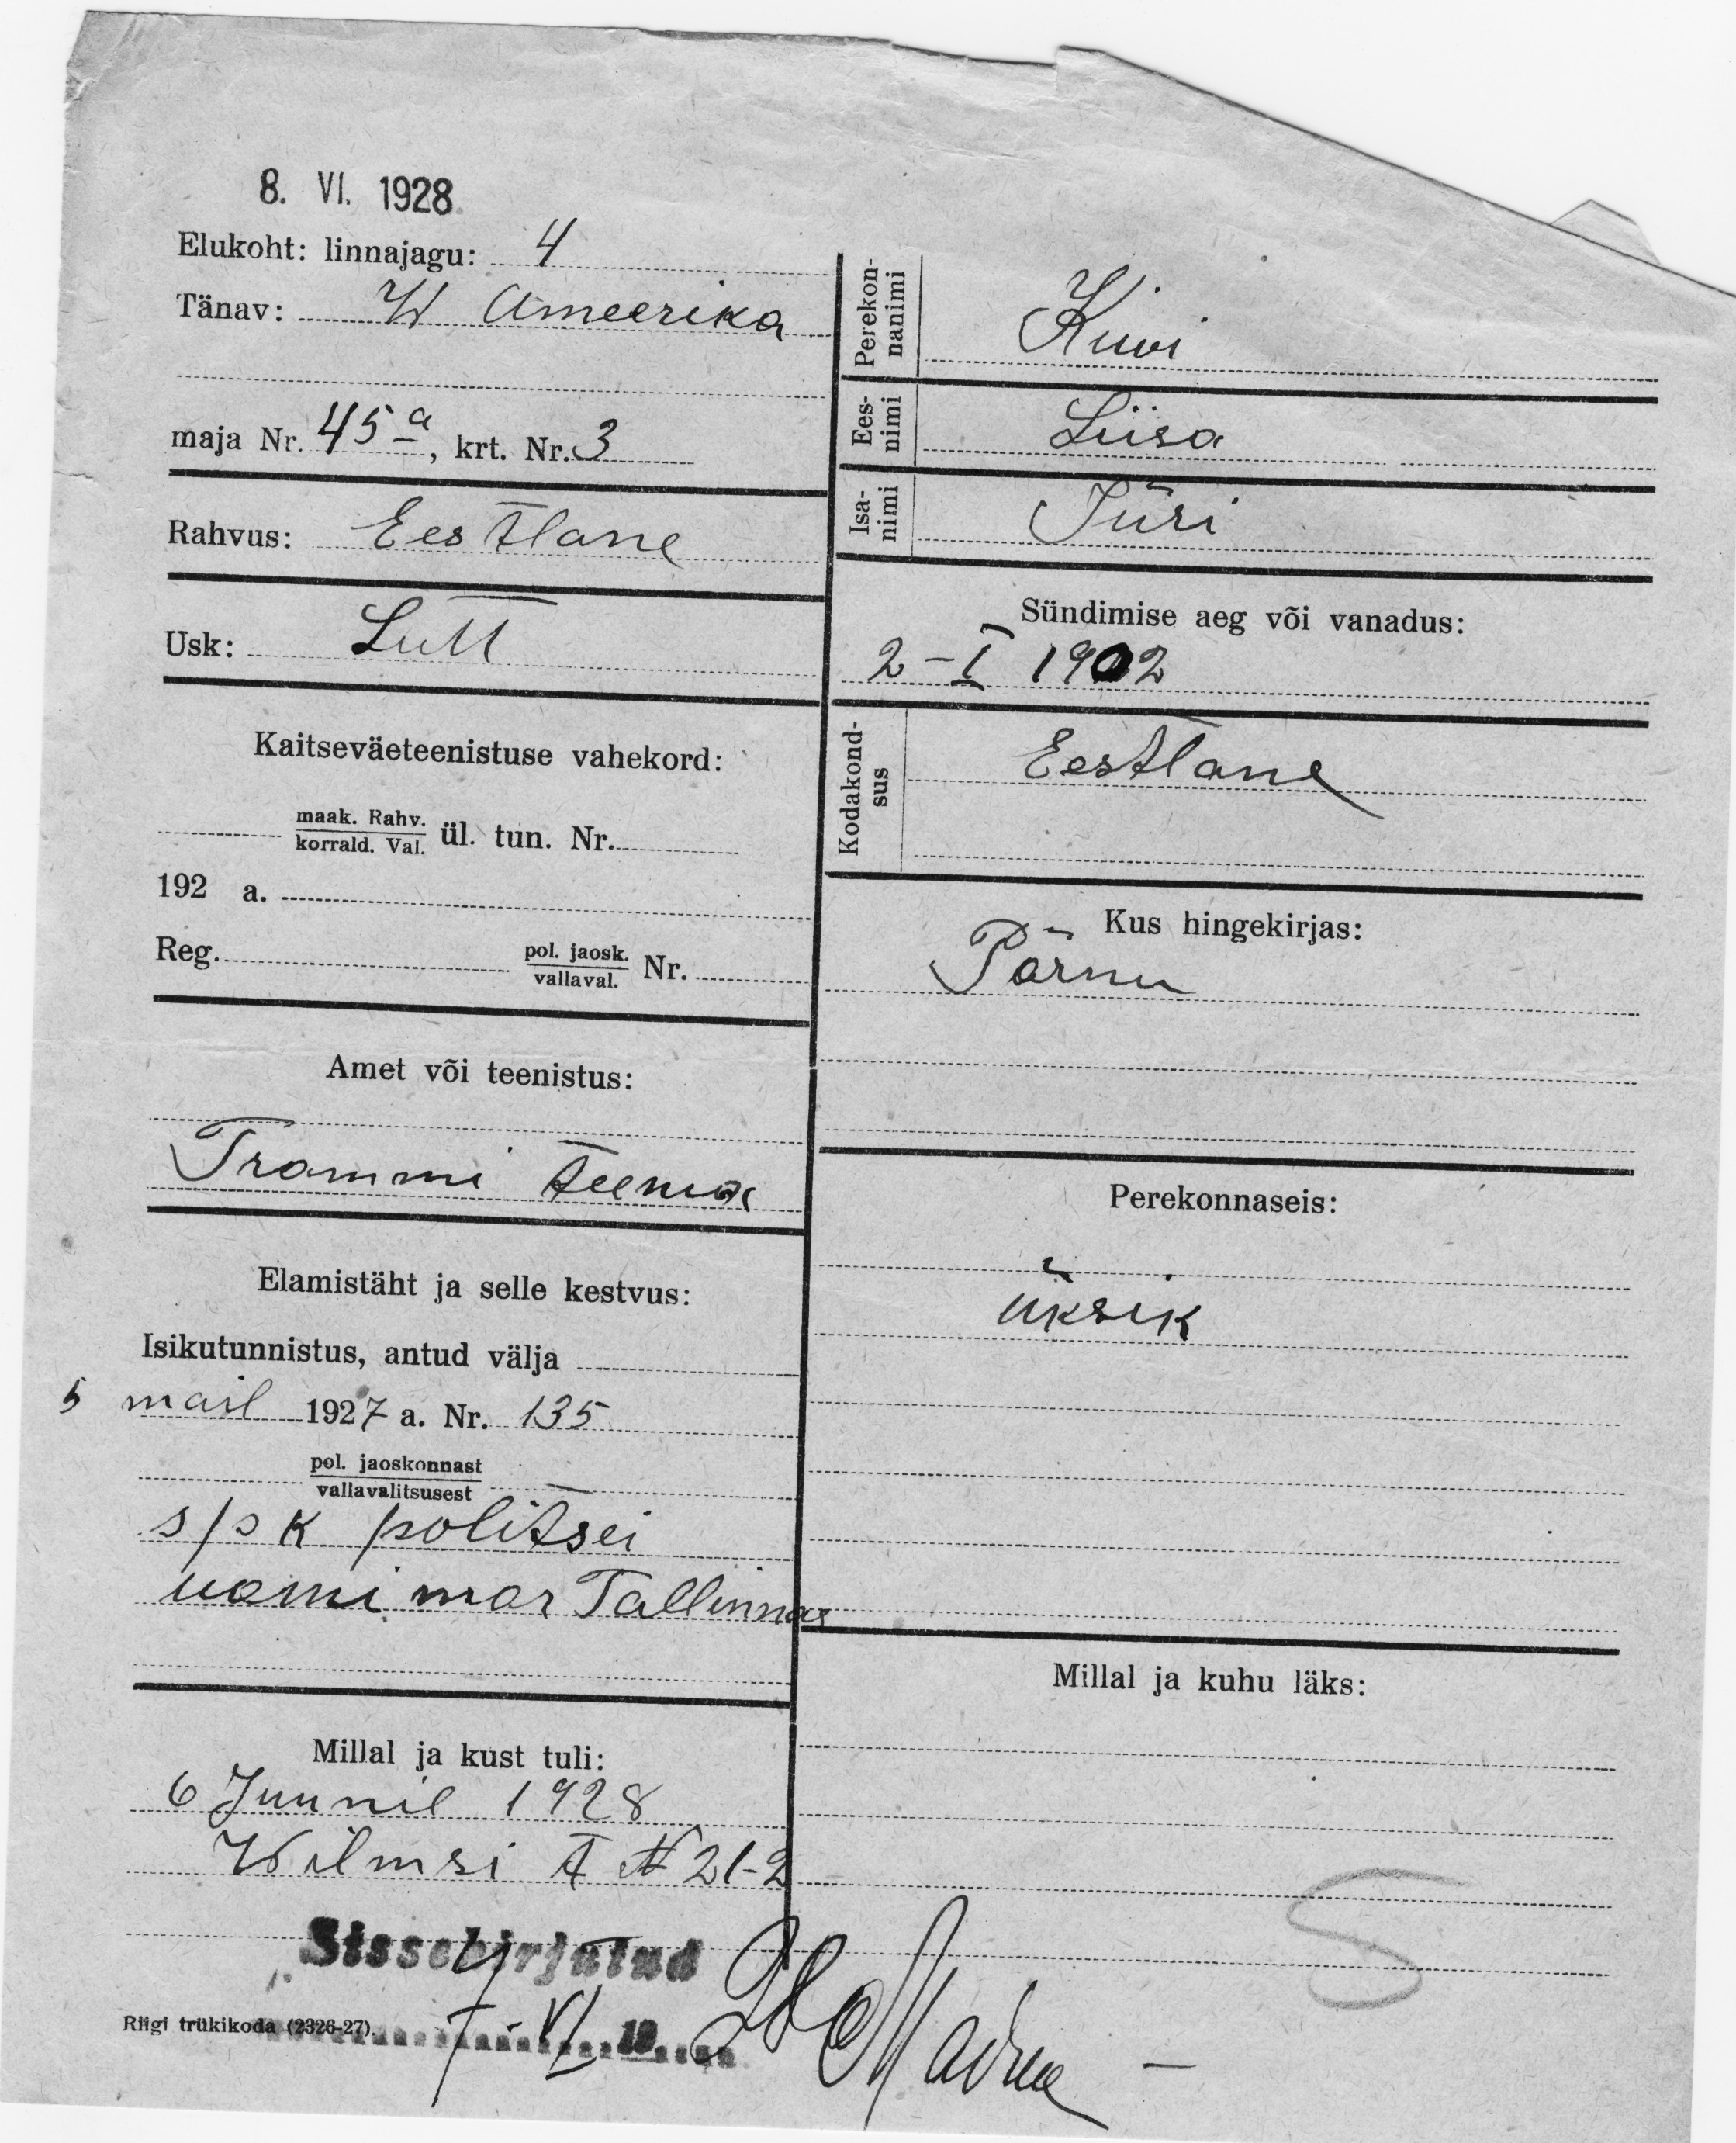 8. VI. 1928
Elukoht: linnajagu: 4
Tänav: W Ameerika
maja Nr. 45a, krt. Nr. 3
Rahvus: Eestlane
Usk: Lutt
Kaitseväeteenistuse vahekord:
maak. Rahv.
korrald. Val. ül. tun. Nr.
192 a.
Reg. pol. jaosk.
vallaval. Nr.
Amet või teenistus:
Trammi teenia
Elamistäht ja selle kestvus:
Isikutunnistus, antud välja
5 mail 1927 a. Nr. 135
pol. jaoskonnast
vallavalitsusest
politsei
Tallinnas
Millal ja kust tuli:
6 Juunil 1928
Wilmsi t № 21-2
Sissekirjutud
7-VI 19 28
Riigi trükikoda (2326-27).
Perekon-
nanimi Kiwi
Ees-
nimi Liisa
Isa-
nimi Jüri
Sündimise aeg või vanadus:
2-I 1902
Kodakond-
sus Eestlane
Kus hingekirjas:
Pärnu
Perekonnaseis:
üksik
Millal ja kuhu läks:
S